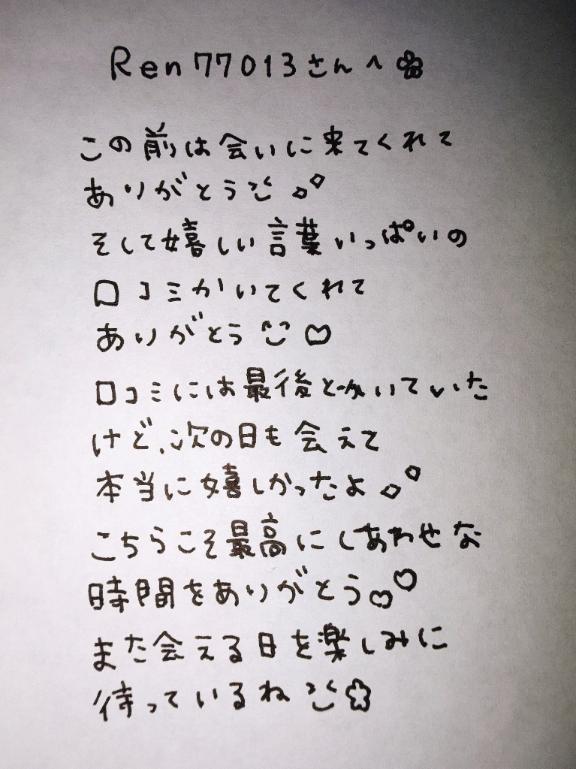 Ren77013さんへ
この前は会いに来てくれて
ありがとう
そして嬉しい言葉いっぱいの
口コミかいてくれて
ありがとう
口コミには最後とかいていた
けど、次の日も会えて
本当に嬉しかったよ
こちらこそ最高にしあわせな
時間をありがとう
また会える日を楽しみに
待っているね